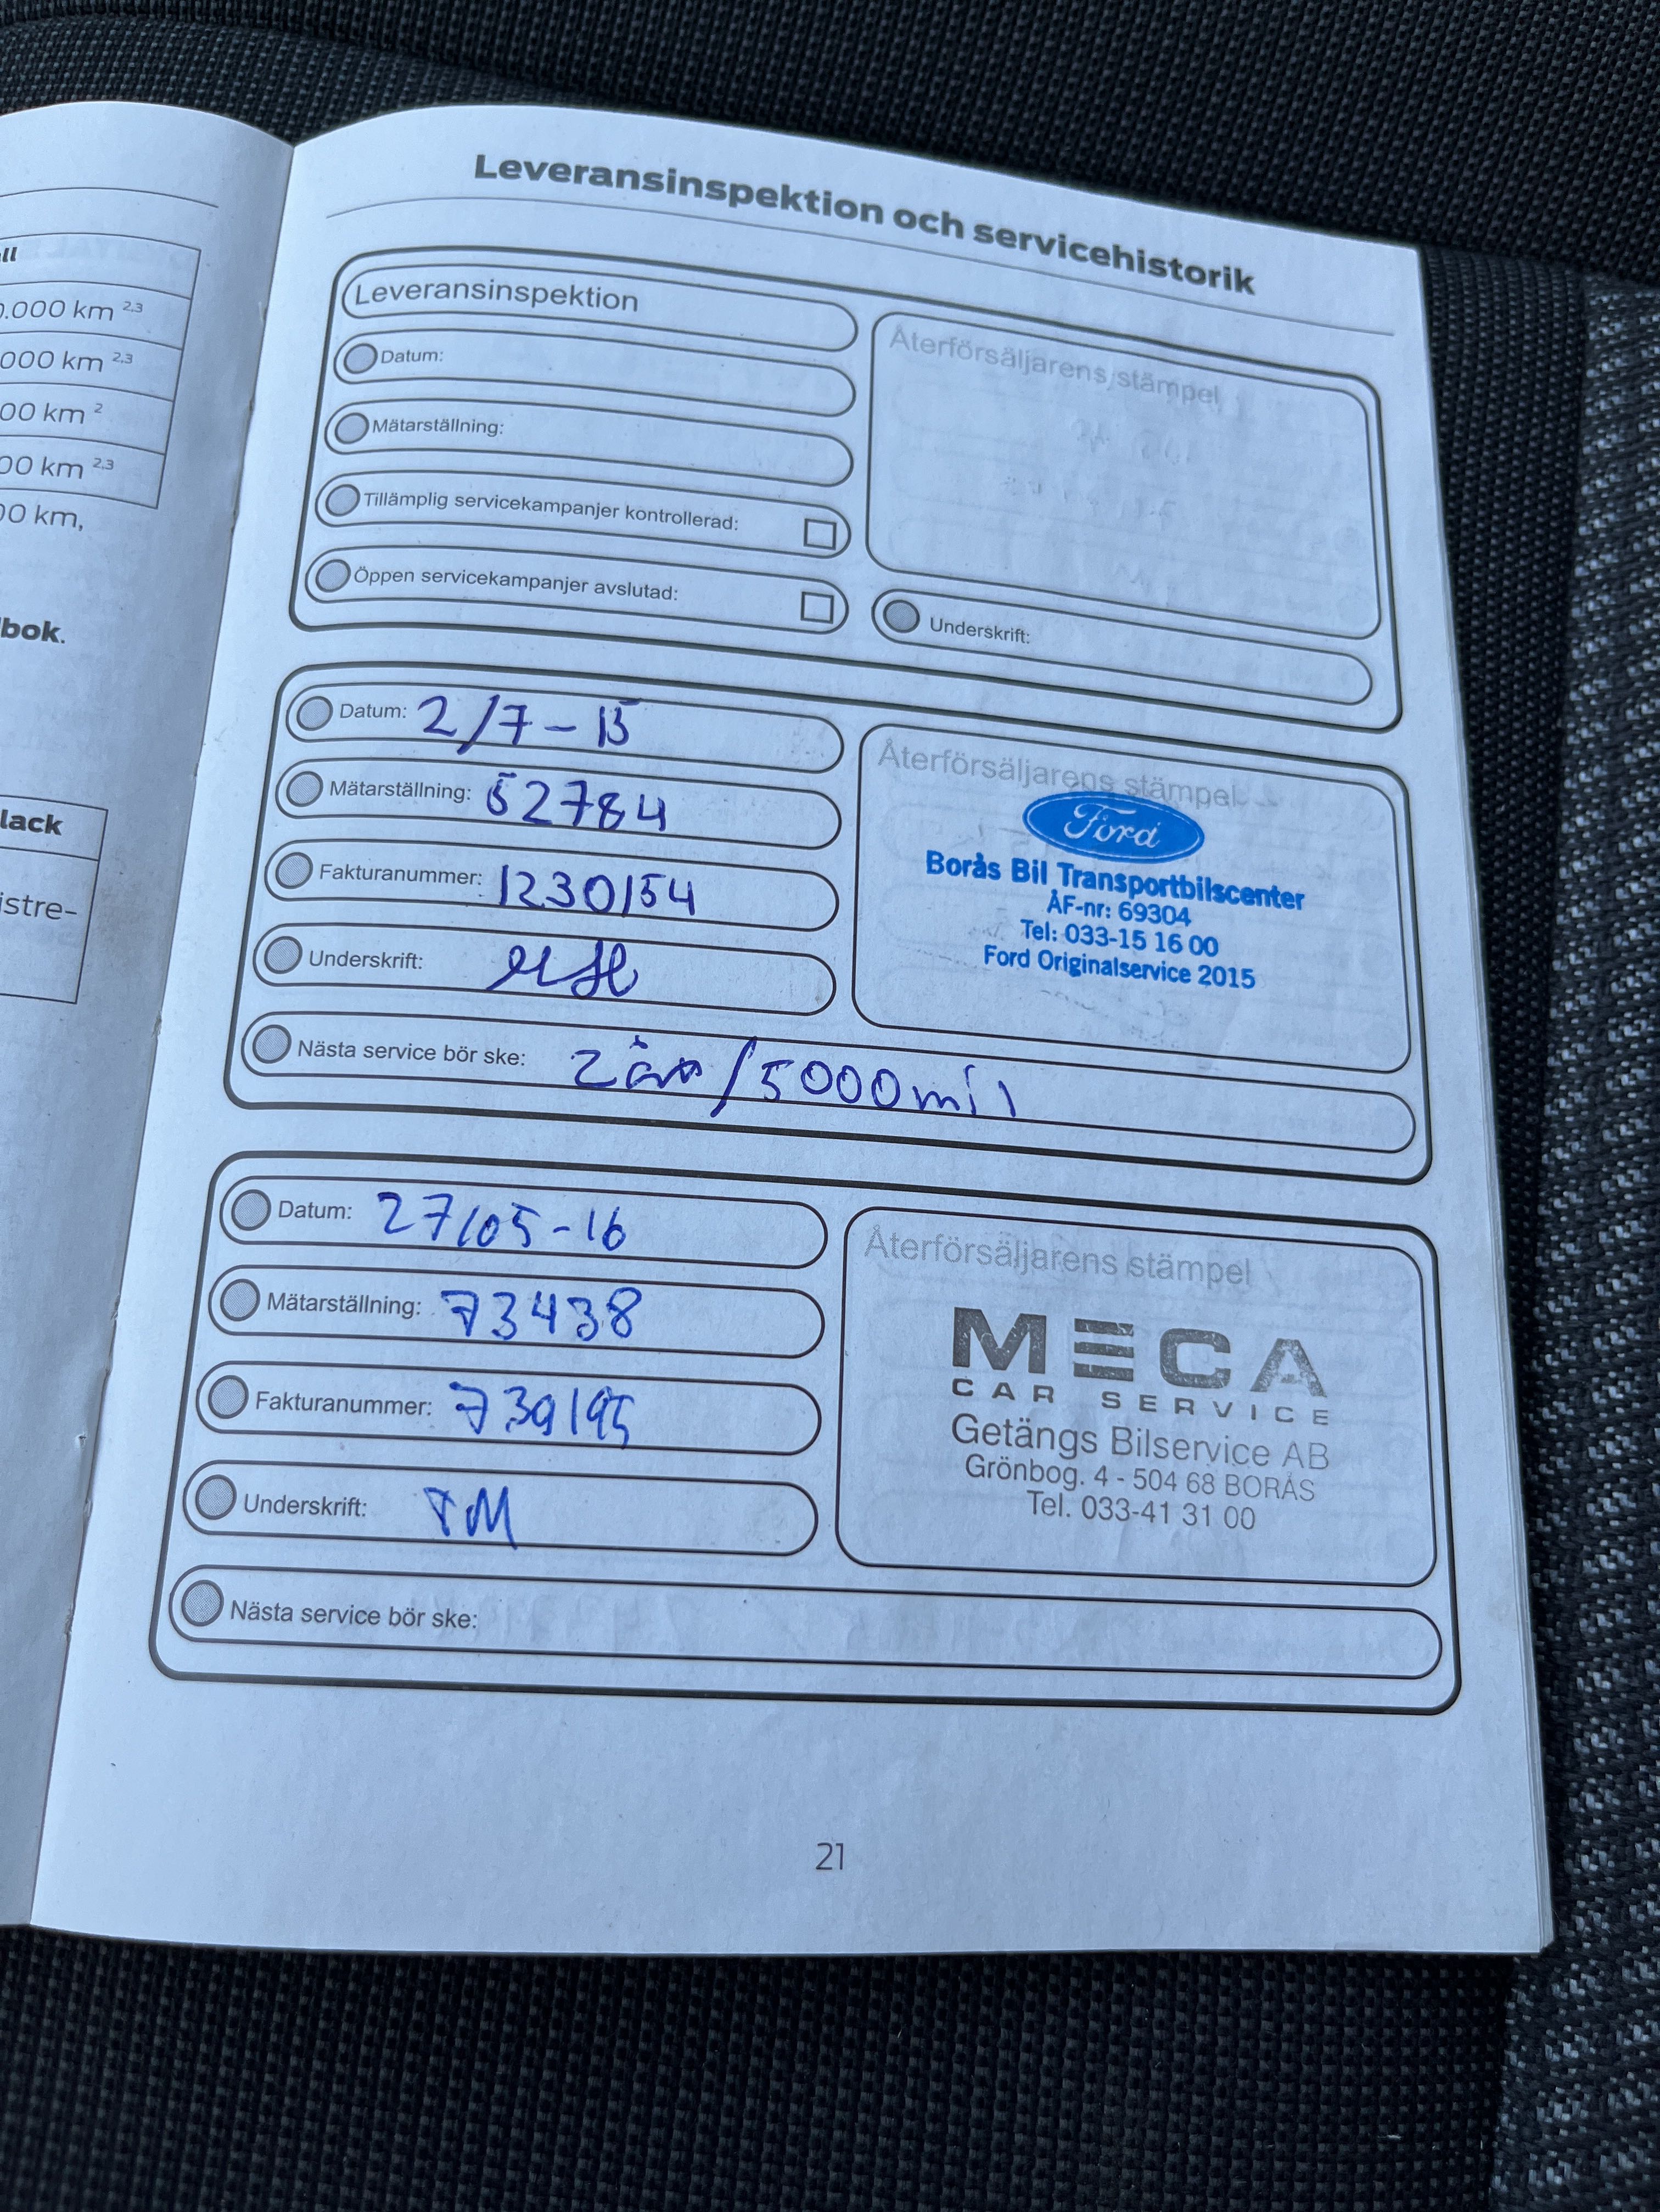 ll
0.000 km 2,3
000 km 2,3
00 km 2
00 km 2,3
00 km,
bok.
lack
istre-
Leveransinspektion och servicehistorik
Leveransinspektion
Datum:
Mätarställning:
Tillämplig servicekampanjer kontrollerad:
Öppen servicekampanjer avslutad:
Återförsäljarens stämpel
Underskrift:
Datum: 2/7-15
Mätarställning: 52784
Fakturanummer: 1230154
Underskrift:
Nästa service bör ske: 2 år / 5000 mil
Återförsäljarens stämpel
Ford
Borås Bil Transportbilscenter
ÅF-nr: 69304
Tel: 033-15 16 00
Ford Originalservice 2015
Datum: 27/05-16
Mätarställning: 73438
Fakturanummer: 739195
Underskrift: TM
Nästa service bör ske:
Återförsäljarens stämpel
MECA
CAR SERVICE
Getängs Bilservice AB
Grönbog. 4 - 504 68 BORÅS
Tel. 033-41 31 00
21